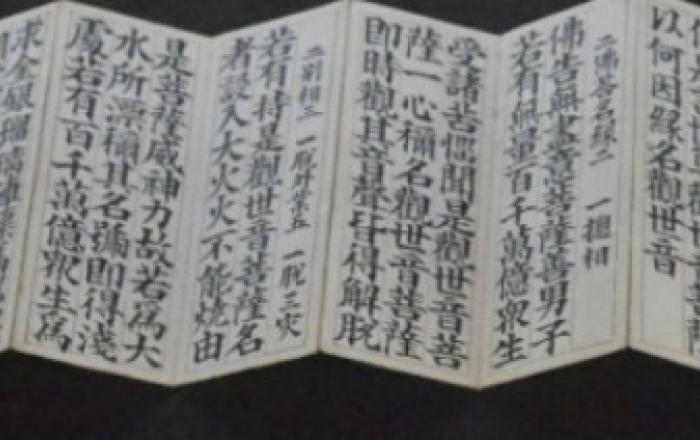 以何因緣名觀世音
二佛告名緣二　一揔相
佛告無盡意菩薩善男子
若有無量百千萬億衆生
受諸苦惱聞是觀世音菩
薩一心稱名觀世音菩薩
即時觀其音聲皆得解脫
二別相三　一脫外業五　一脫三灾
若有持是觀世音菩薩名
者設入大火火不能燒由
是菩薩威神力故若為大
水所漂稱其名號即得淺
處若有百千萬億衆生為
求金銀瑠璃